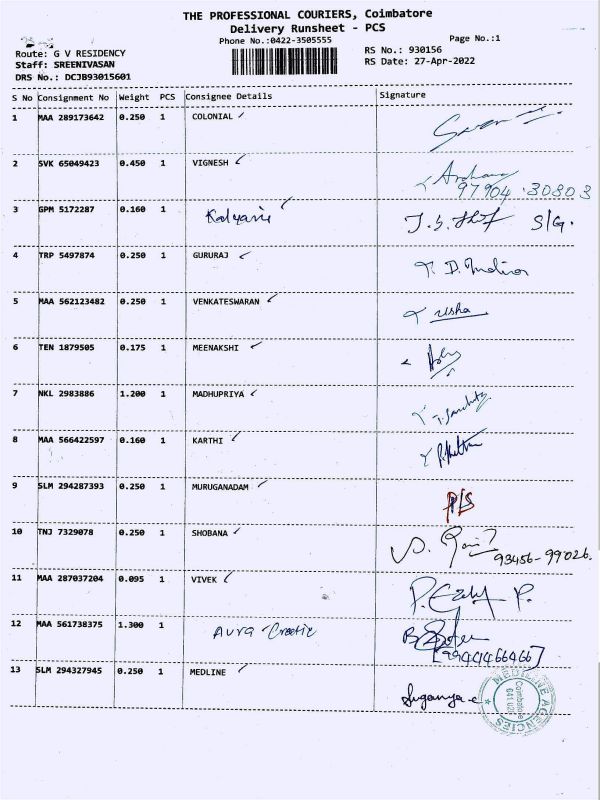 THE PROFESSIONAL COURIERS, Coimbatore
Delivery Runsheet - PCS
Phone No.:0422-3505555
Page No.:1
Route: G V RESIDENCY
RS No.: 930156
Staff: SREENIVASAN
RS Date: 27-Apr-2022
DRS No.: DCJB93015601
S No Consignment No Weight PCS Consignee Details Signature
1 MAA 289173642 0.250 1 COLONIAL
2 SVK 65049423 0.450 1 VIGNESH
97904 30803
3 GPM 5172287 0.160 1 Kalyani S/G.
4 TRP 5497874 0.250 1 GURURAJ T. D. Indira
5 MAA 562123482 0.250 1 VENKATESWARAN usha
6 TEN 1879505 0.175 1 MEENAKSHI
7 NKL 2983886 1.200 1 MADHUPRIYA
8 MAA 566422597 0.160 1 KARTHI
9 SLM 294287393 0.250 1 MURUGANADAM
10 TNJ 7329078 0.250 1 SHOBANA
93456-99026.
11 MAA 287037204 0.095 1 VIVEK
12 MAA 561738375 1.300 1 Aura Creatic
13 SLM 294327945 0.250 1 MEDLINE Suganya
MEDLINE AGENCIES
Coimbatore